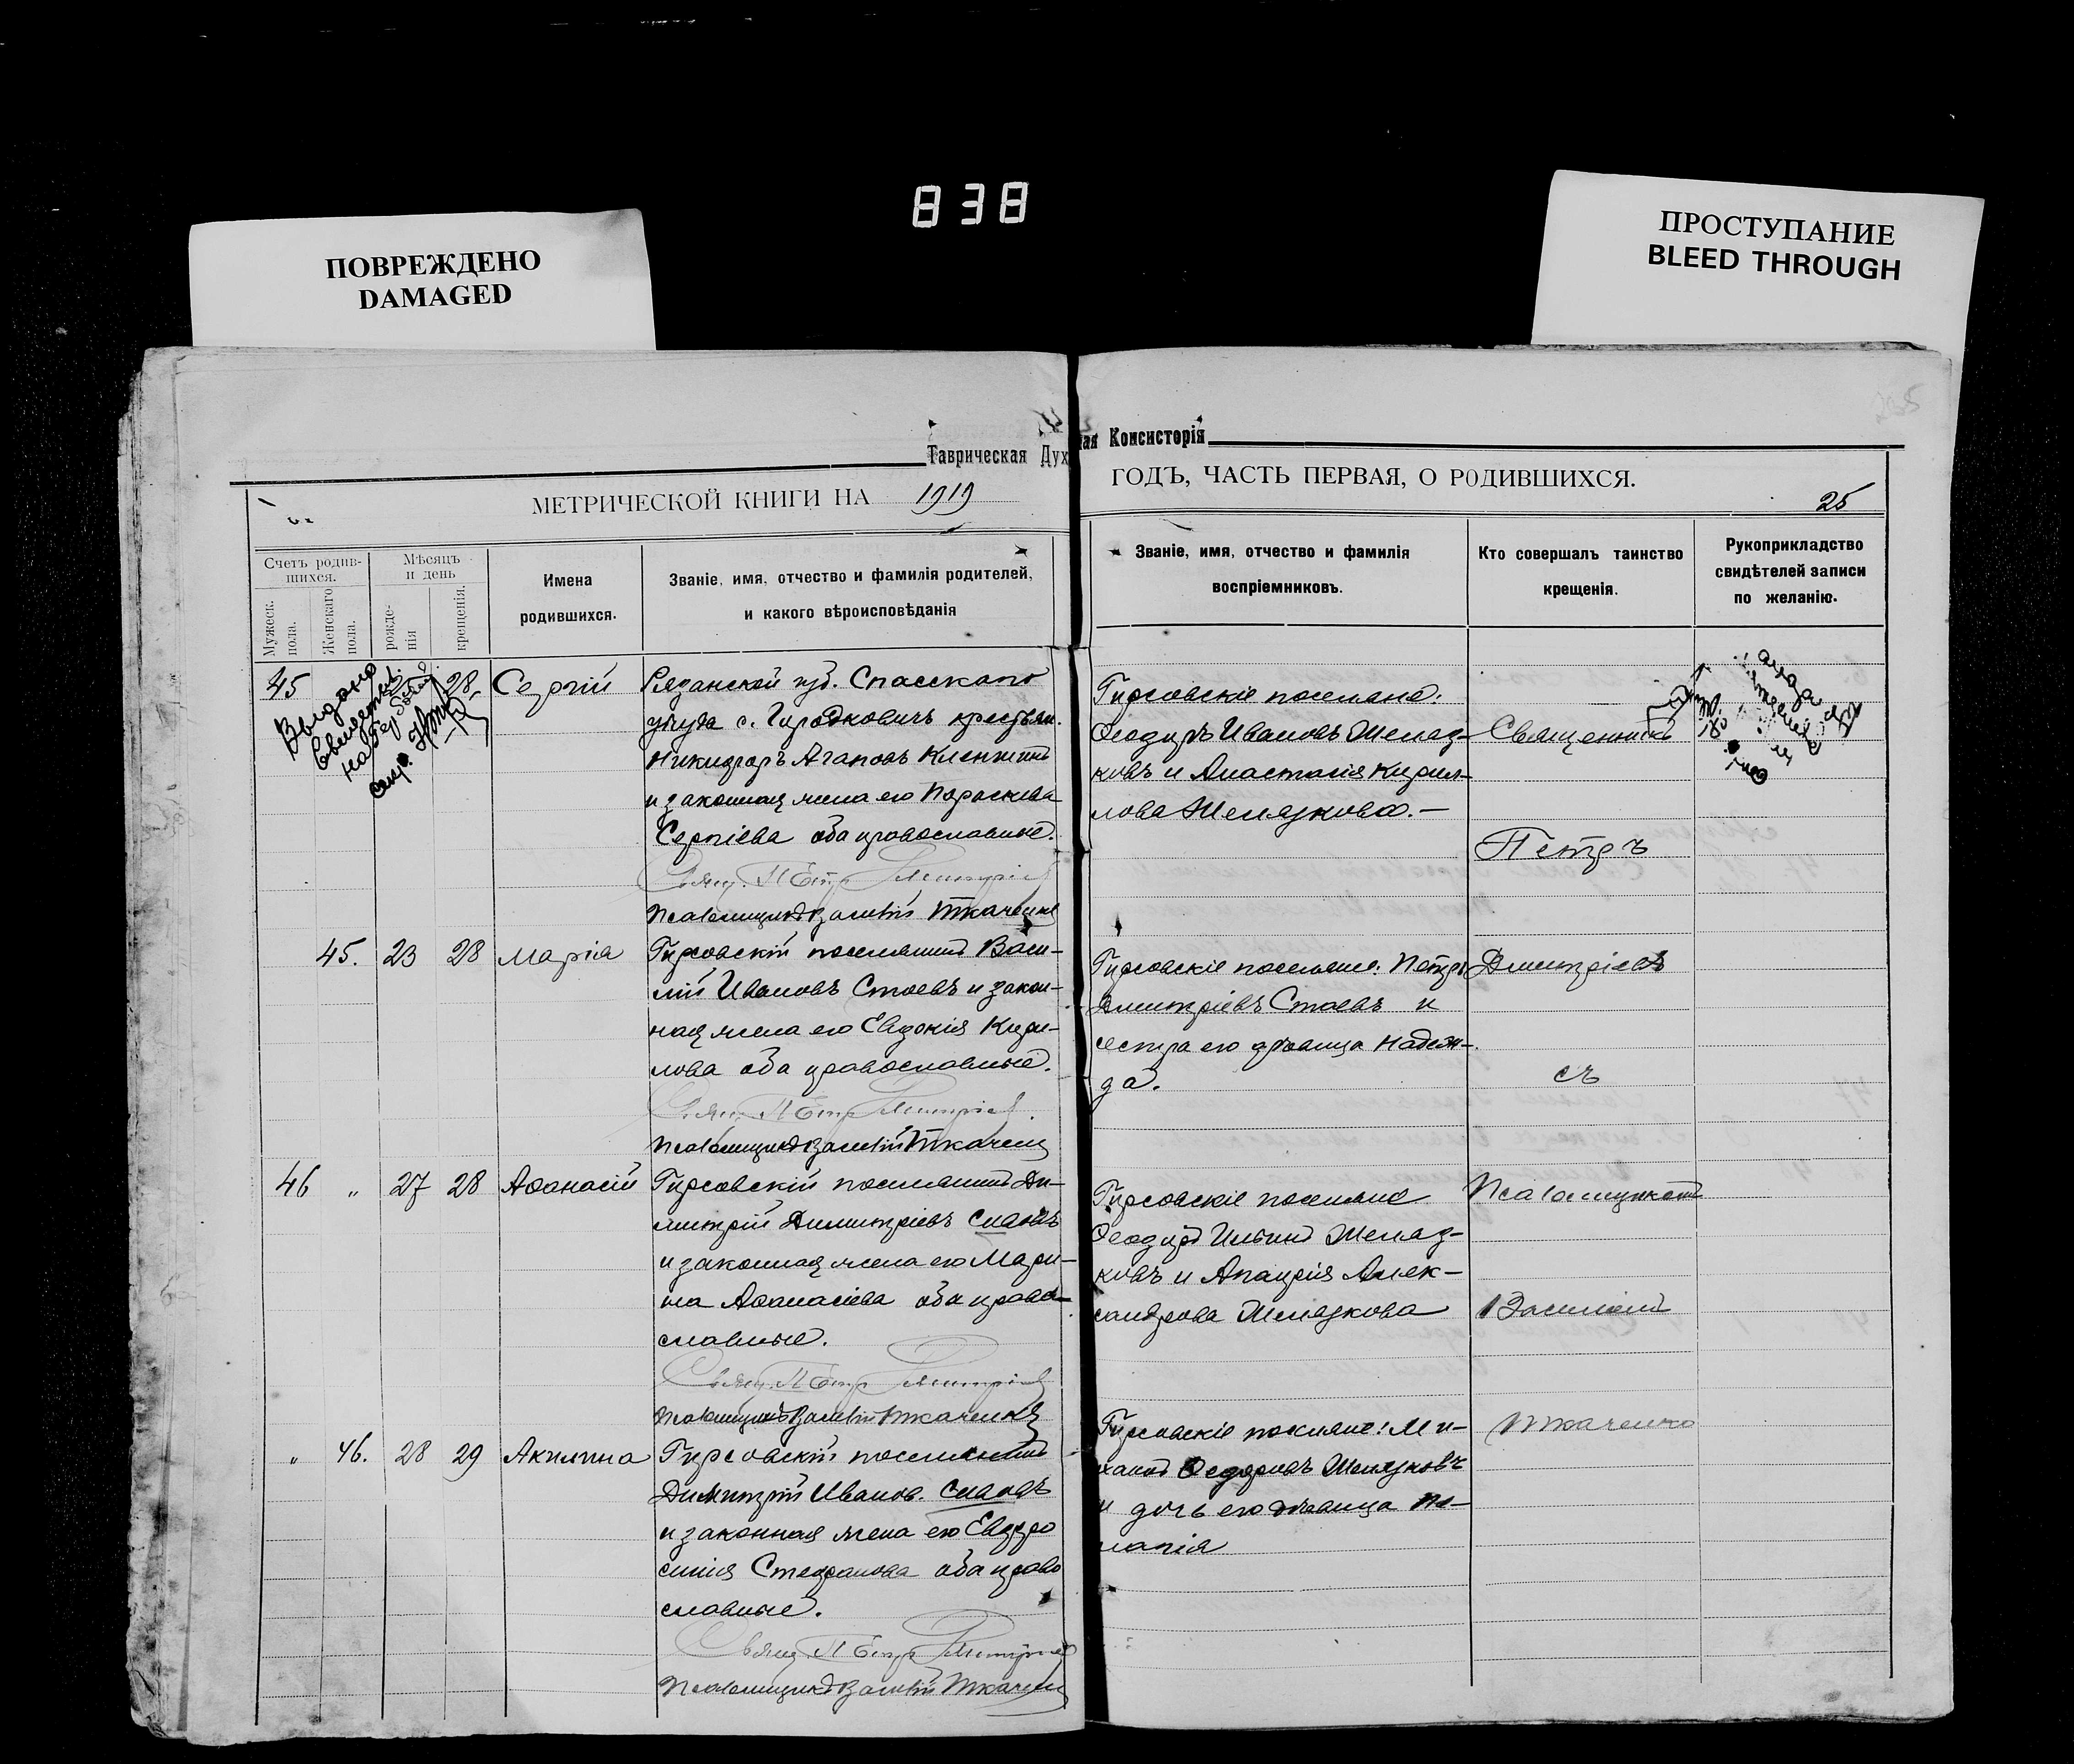 838
ПОВРЕЖДЕНО
DAMAGED
ПРОСТУПАНИЕ
BLEED THROUGH
Таврическая Дух
ная Консисторія
МЕТРИЧЕСКОЙ КНИГИ НА 1919
ГОДЪ, ЧАСТЬ ПЕРВАЯ, О РОДИВШИХСЯ.
25
Счетъ родив-
шихся.
Мужеск.
пола.
Женскаго
пола.
Мѣсяцъ
и день
рожде-
нія
крещенія.
Имена
родившихся.
Званіе, имя, отчество и фамилія родителей,
и какого вѣроисповѣданія
Званіе, имя, отчество и фамилія
воспріемниковъ.
Кто совершалъ таинство
крещенія.
Рукоприкладство
свидѣтелей записи
по желанію.
45
Выдано
28
Сергій
Рязанской губ. Спасскаго
уѣзда с. Городковичъ крестьян.
Никифоръ Агаповъ
и законная жена его Параскева
Сергіева оба православные.
Свящ. Петр Димитріев
Псаломщикъ Василій Ткаченко
Гирсовскіе поселяне:
Феодоръ Ивановъ Желяз-
ковъ и Анастасія Кирил-
лова Желязкова.-
Священникъ
Петръ
45. 23 28 Марія
Гирсовскій поселянинъ Васи-
лій Ивановъ Стоевъ и закон-
ная жена его Евдокія Кири-
лова оба православные.
Свящ. Петр Димитріев.
Псаломщикъ Василій Ткаченко
Гирсовскіе поселяне: Петръ
Димитріевъ Стоевъ и
сестра его дѣвица Надеж-
да.
Димитріевъ
съ
46 " 27 28 Афанасій
Гирсовскій поселянинъ Ди-
митрій Димитріевъ Славовъ
и законная жена его Мари-
на Афанасіева оба право-
славные.
Свящ. Петр Димитріев
Псаломщикъ Василій Ткаченко
Гирсовскіе поселяне
Феодоръ Ильинъ Желяз-
ковъ и Алек-
сандрова Желязкова
Псаломщикомъ
Василіемъ
" 46. 28 29 Акилина
Гирсовскій поселянинъ
Димитрій Иванов. Славовъ
и законная жена его Евфро
синія Стефанова оба право
славные.
Свящ. Петр Димитріев
Псаломщикъ Василій Ткаченко
Гирсовскіе поселяне: Ми-
хаилъ Федоровъ Желязковъ
и дочь его дѣвица Пе-
лагія
Ткаченко